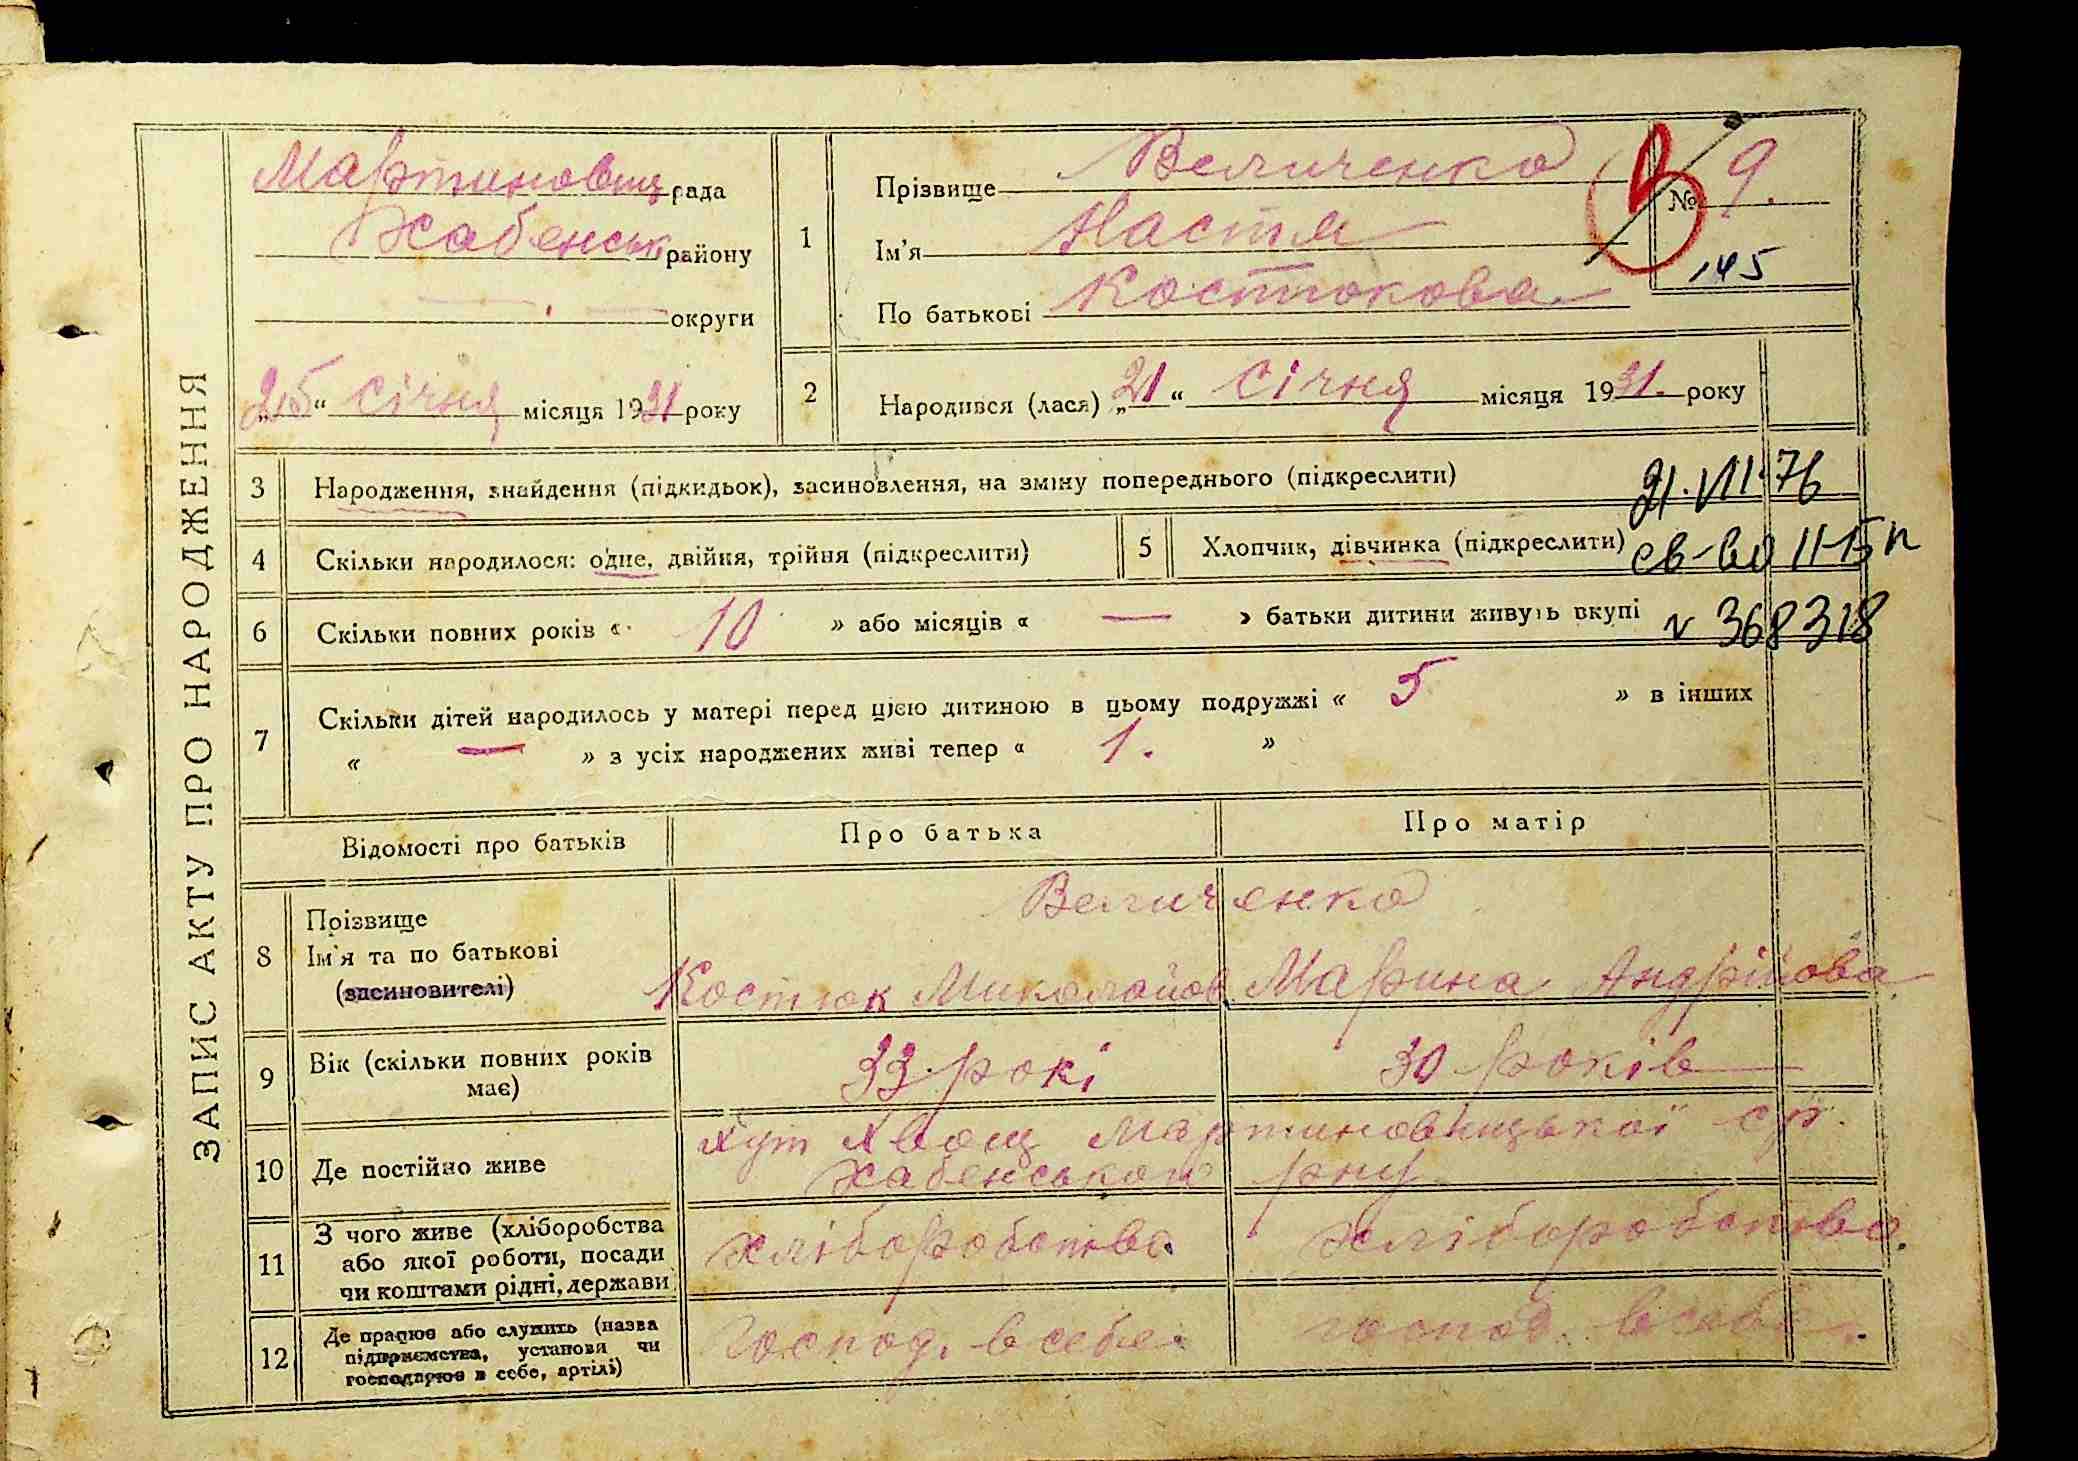 ЗАПИС АКТУ ПРО НАРОДЖЕННЯ
Мартиновиц рада
Хабенськ району
округи
„25“ січня місяця 1931 року
1
Прізвище Величенко
Ім'я Настя
По батькові Костюкова
№ 9.
145
2
Народився (лася) „21“ січня місяця 1931. року
3 Народження, знайдення (підкидьок), засиновлення, на зміну попереднього (підкреслити)
21.VII.76
4 Скільки народилося: одне, двійня, трійня (підкреслити)
5 Хлопчик, дівчинка (підкреслити)
св-во II-БК
6 Скільки повних років « 10 » або місяців « — » батьки дитини живуть вкупі
№ 368318
7 Скільки дітей народилось у матері перед цією дитиною в цьому подружжі « 5 » в інших
« — » з усіх народжених живі тепер « 1. »
Відомості про батьків Про батька Про матір
8 Прізвище
Ім'я та по батькові
(засиновителі)
Величенко
Костюк Миколайов Марина Андрійова
9 Вік (скільки повних років
має)
33 рокі 30 років
10 Де постійно живе
хут Хвощ Мартиновицької с/р.
Хабенського рну
11 З чого живе (хліборобства
або якої роботи, посади
чи коштами рідні, держави
хліборобство хліборобство.
12 Де працює або служить (назва
підприємства, установи чи
господарює в себе, артілі)
Господ. в себе. господ. в себе.